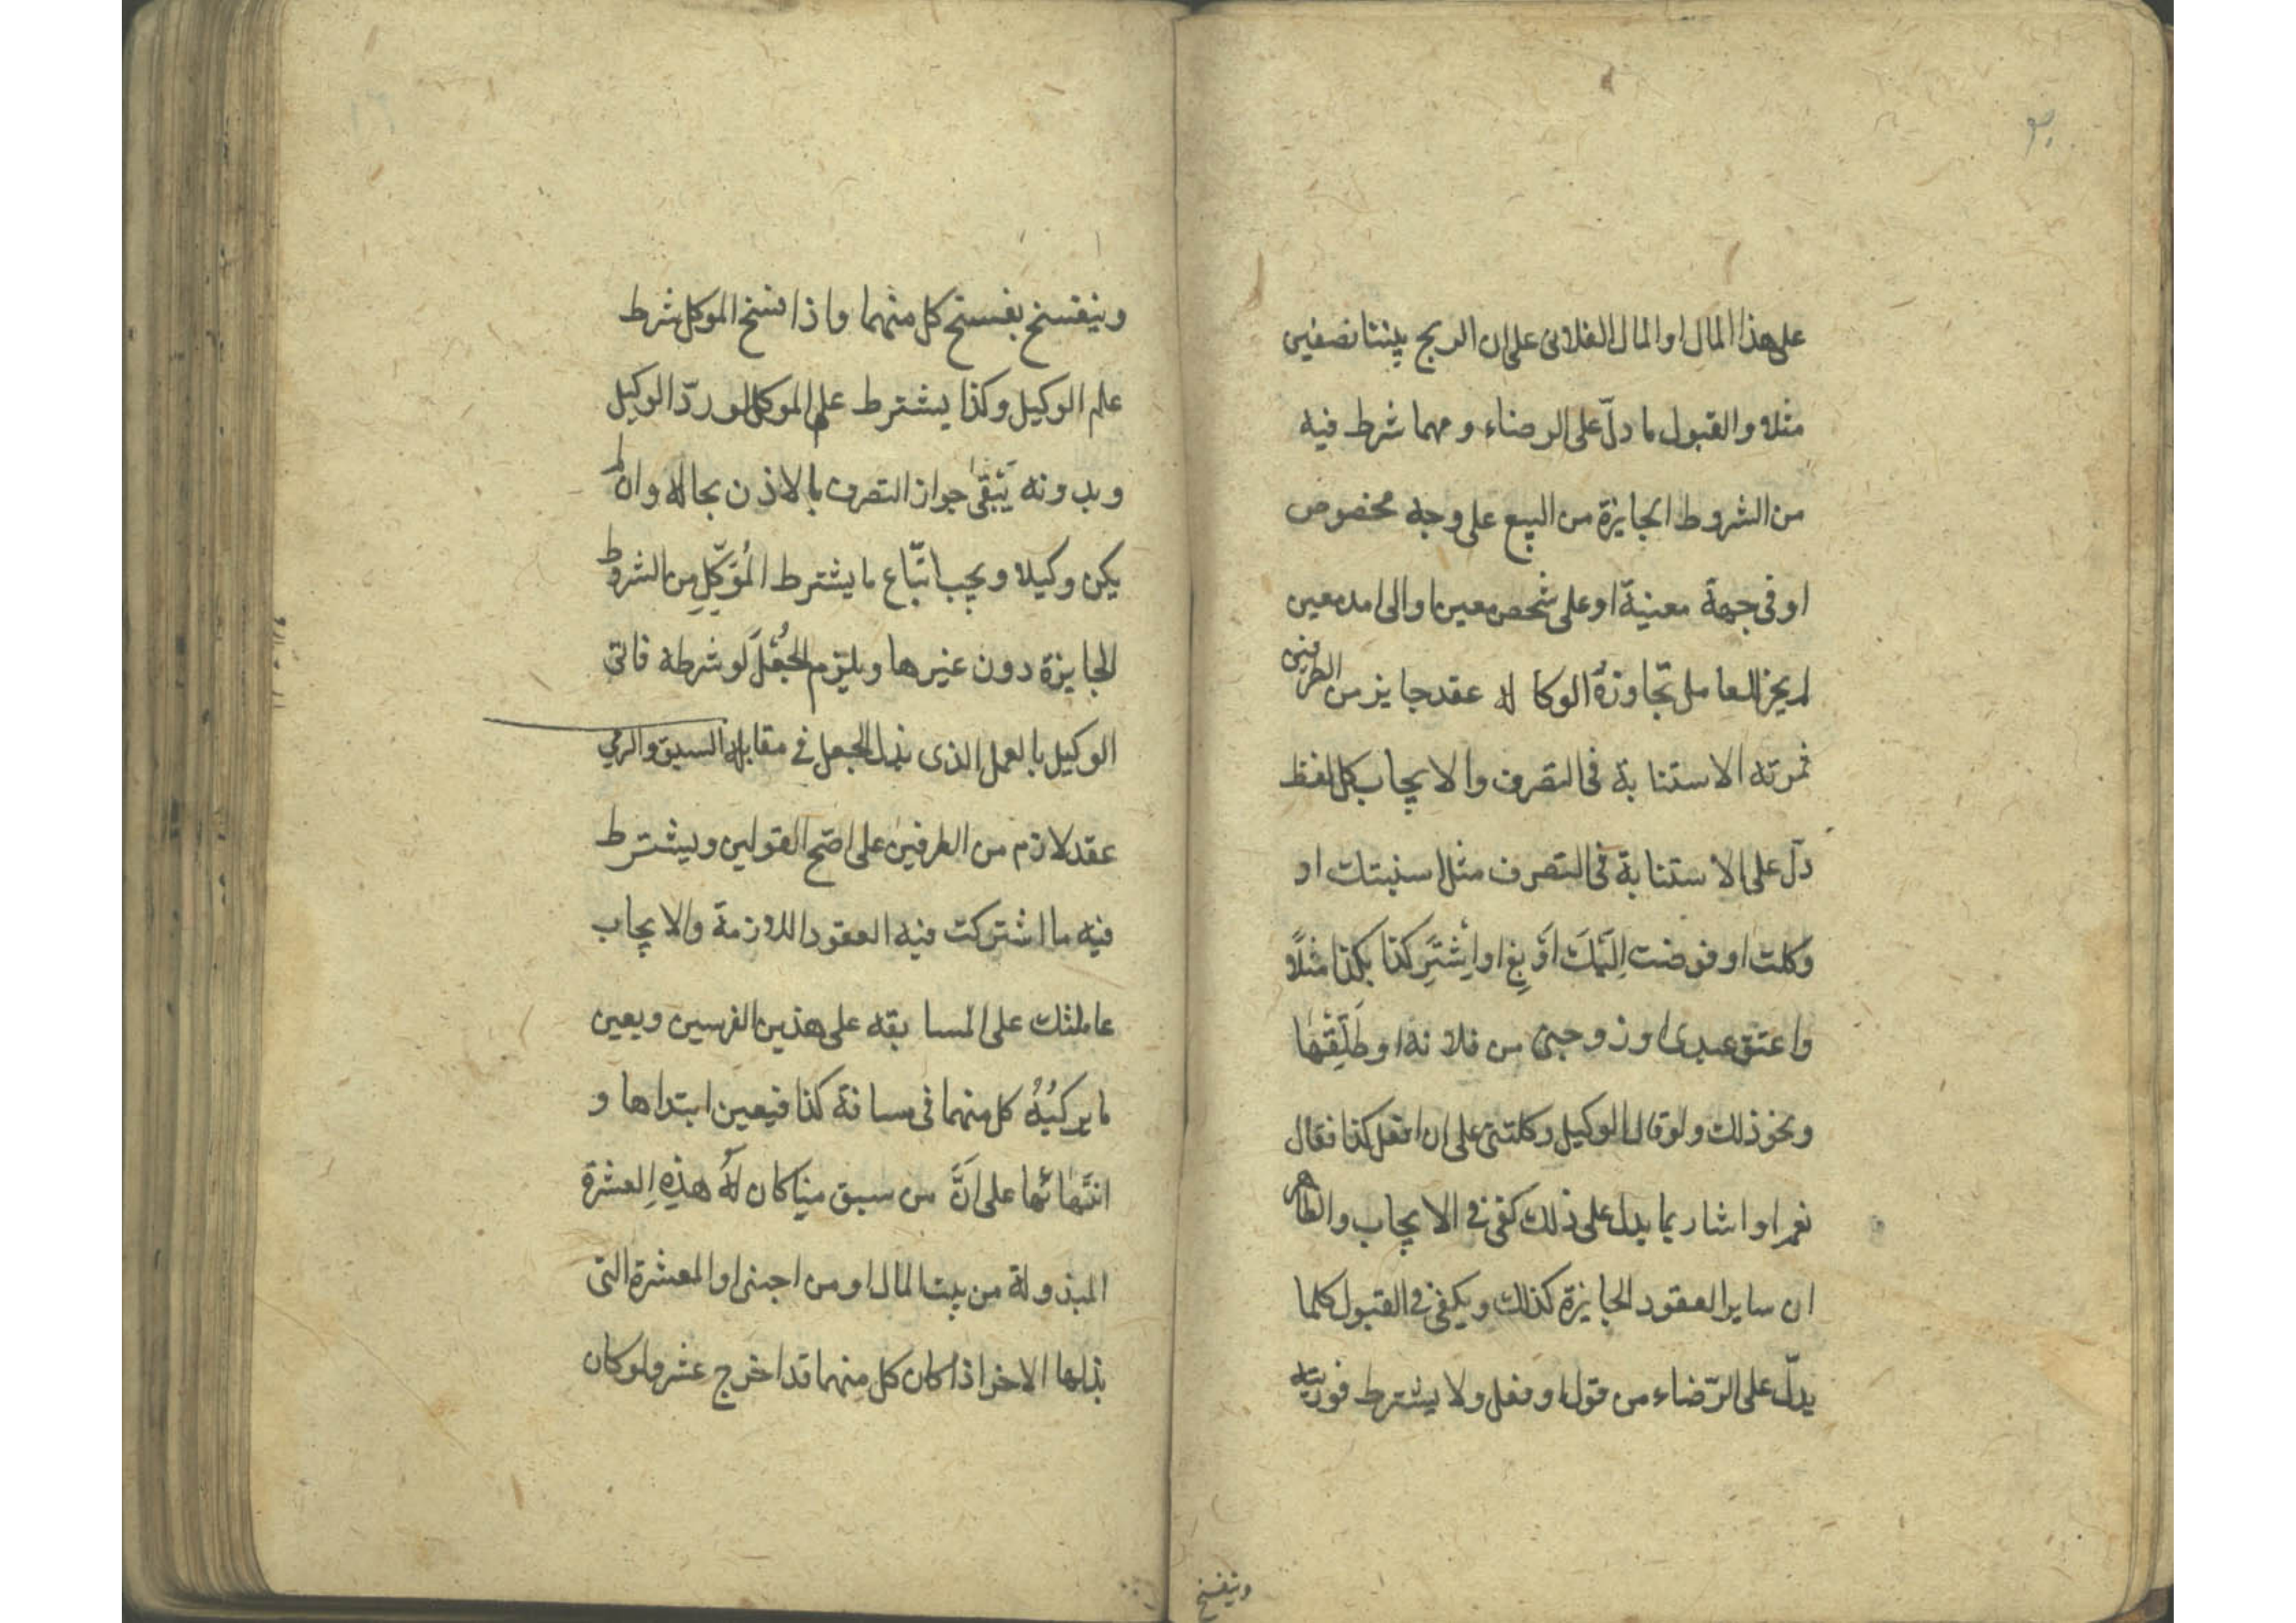 ٣٠
على هذا المال او المال الفلانى على ان الربح بيننا نصفين
مثلا والقبول ما دلّ على الرضاء ومهما شرط فيه
من الشروط الجايزة من البيع على وجه مخصوص
او فى جهة معنية او على شخص معين او الى امد معين
لم يجز للعامل تجاوزهُ الوكاله عقد جايز من الطرفين
ثمرته الاستنابة فى التصرف والايجاب كل لفظ
دلّ على الاستنابة فى التصرف مثل استنبتك او
وكلت او فوضت اِلَيْكَ اَوْ بِعْ او اِشْتَرِ كذا بكذا مثلًا
واعتق عبدى او زوجنى من فلانة او طَلِّقْهٰا
ونحو ذلك ولو قال الوكيل وكلتنى على ان افعل كذا فقال
نعم او اشار بما يدل على ذلك كفى فى الايجاب والظاهر
ان ساير العقود الجايزة كذلك ويكفى فى القبول كلما
يدلّ على الرّضاء من قول او فعل ولا يشترط فوريته
وينفسخ
وينفسخ بفسخ كل منهما واذا فسخ الموكل شرط
علم الوكيل وكذا يشترط علم الموكل لو ردّ الوكيل
وبدونه يَبْقىٰ جواز التصرف بالاذن بحاله وان لم
يكن وكيلا ويجب اتّباع ما يشترط المُوَكِّلِ مِن الشروط
الجايزة دون غيرها ويلزم الجُعْلَ لو شرطه فاتى
الوكيل بالعمل الذى بذل الجعل فى مقابله السبق والرمي
عقد لازم من الطرفين على اصّح القولين ويشترط
فيه ما اشتركت فيه العقود اللازمة والايجاب
عاملتك على المسابقه على هذين الفرسين ويعين
ما يركبُهُ كل منهما فى مسافة كذا فيعين ابتداها و
انتهٰائها على اَنَّ من سبق منا كان لَهُ هذِهِ العشرة
المبذولة من بيت المال او من اجنبى او العشرة التى
بذلها الاخر اذا كان كل منهما قد اخرج عشر ولو كان